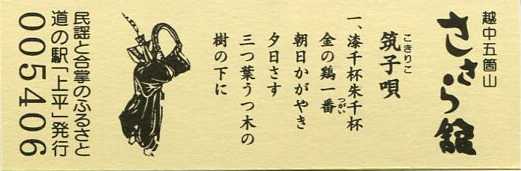 越中五箇山
ささら館
こきりこ
筑子唄
一、漆千杯朱千杯
金の鶏一番
つがい
朝日かがやき
夕日さす
三つ葉うつ木の
樹の下に
民謡と合掌のふるさと
道の駅「上平」発行
005406